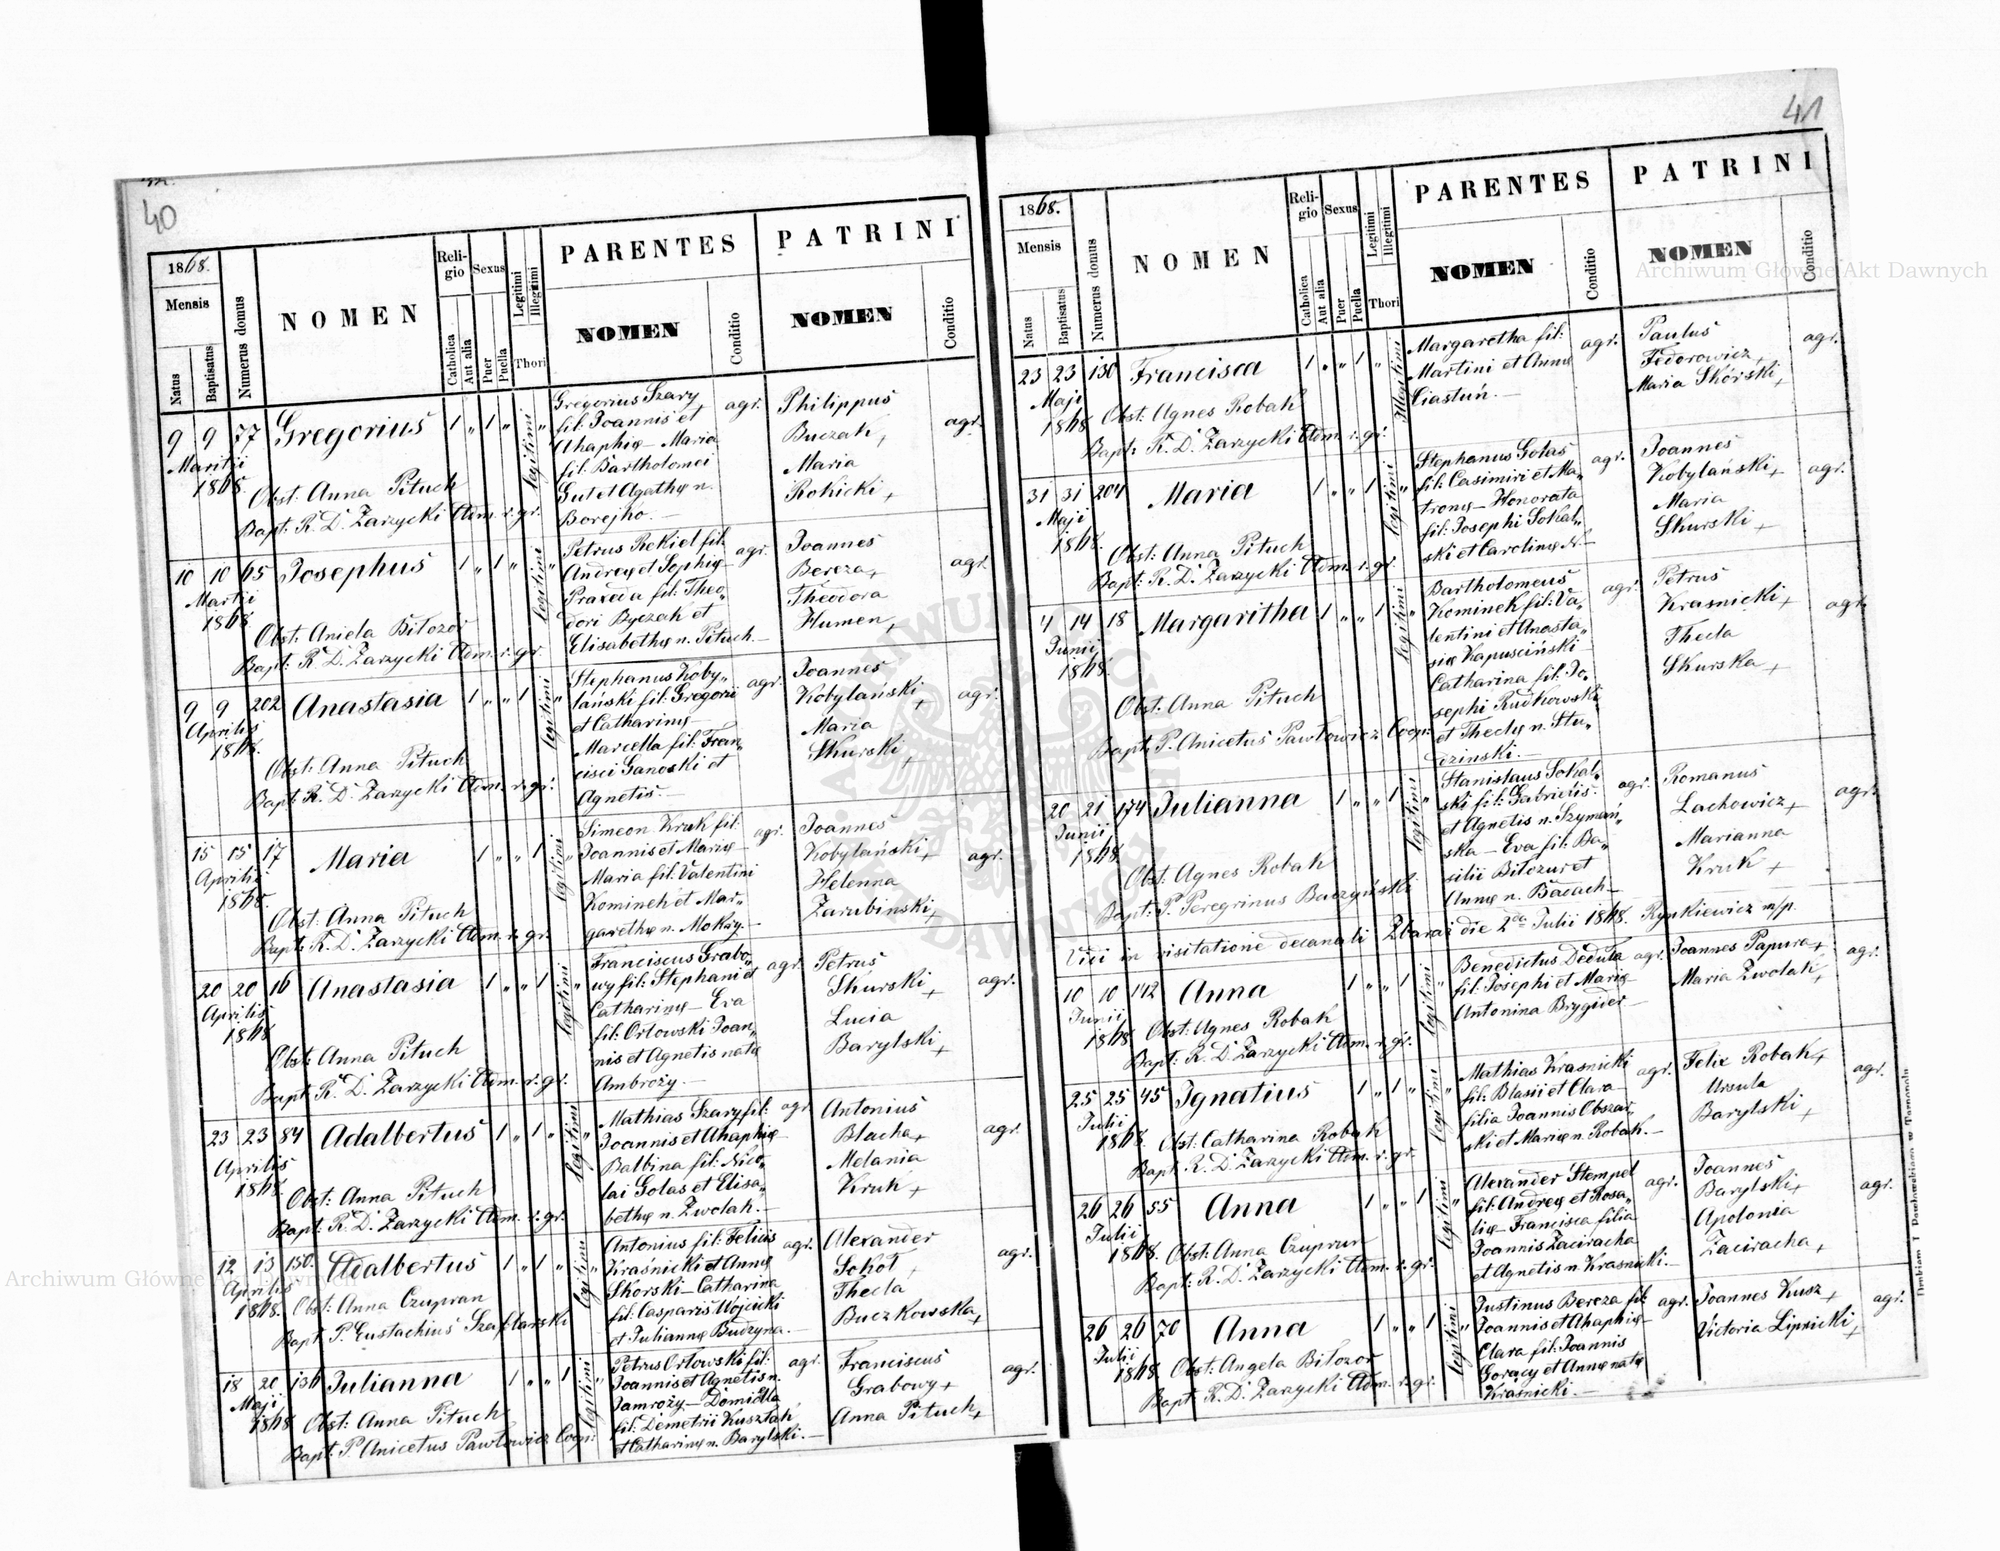 40
1868.
Mensis
Natus
Baptisatus
Numerus domus
NOMEN
Religio
Catholica
Aut alia
Sexus
Puer
Puella
Legitimi
Illegitimi
Thori
PARENTES
NOMEN
Conditio
PATRINI
NOMEN
Conditio
9 9 77 Gregorius 1 „ 1 „ legitimi „
Martii
1868.
Obst: Anna Pituch
Bapt: R. D. Zarzycki Adm. r. gr.
Gregorius Szary
fil: Joannis et
Ahaphię – Maria
fil: Bartholomei
Gut et Agathę n.
Borejho. –
agr.
Philippus
Buczak +
Maria
Rohicki +
agr.
10 10 65 Josephus 1 „ 1 „ legitimi „
Martii
1868
Obst: Aniela Biłozór
Bapt: R. D. Zarzycki Adm. r. gr.
Petrus Rekiel fil:
Andreę et Sophię
Praxeda fil: Theo„
dori Byczak et
Elisabethę n. Pituch. –
agr.
Joannes
Bereza +
Theodora
Humen +
agr.
9 9 202 Anastasia 1 „ „ 1 legitimi „
Aprilis
1868.
Obst: Anna Pituch
Bapt: R. D. Zarzycki Adm. r. gr.
Stephanus Koby„
lański fil: Gregorii
et Catharinę –
Marcella fil: Fran„
cisci Ganoski et
Agnetis. –
agr.
Joannes
Kobylański +
Maria
Skurski +
agr.
15 15 17 Maria 1 „ „ 1 legitimi „
Aprilis
1868.
Obst: Anna Pituch
Bapt: R. D. Zarzycki Adm. r. gr.
Simeon Kruk fil:
Joannis et Marię –
Maria fil: Valentini
Kominek et Mar„
garethę n. Mokry. –
agr.
Joannes
Kobylański +
Helenna
Zarubinski +
agr.
20 20 16 Anastasia 1 „ „ 1 legitimi „
Aprilis
1868
Obst: Anna Pituch
Bapt: R. D. Zarzycki Adm. r. gr.
Franciscus Grabo„
wy fil: Stephani et
Catharinę – Eva
fil: Orłowski Joan„
nis et Agnetis natę
Ambroży. –
agr.
Petrus
Skurski +
Lucia
Barylski +
agr.
23 23 84 Adalbertus 1 „ 1 „ legitimi „
Aprilis
1868.
Obst: Anna Pituch
Bapt: R. D. Zarzycki Adm. r. gr.
Mathias Szary fil:
Joannis et Ahaphię
Balbina fil: Nico„
lai Gołas et Elisa„
bethę n. Zwolak. –
agr.
Antonius
Blacha +
Melania
Kruk +
agr.
12 13 150. Adalbertus 1 „ 1 „ legitimi „
Aprilis
1868.
Obst: Anna Czupran
Bapt: P. Eustachius Szaflarski
Antonius fil: Felicis
Krasnicki et Annę
Skorski – Catharina
fil: Casparis Wojcicki
et Juliannę Budzyna. –
agr.
Alexander
Sokoł +
Thecla
Buczkowska +
agr.
18 20 136 Julianna 1 „ „ 1 legitimi „
Maji
1868
Obst: Anna Pituch
Bapt: P. Anicetus Pawłowicz Coop:
Petrus Orłowski fil:
Joannis et Agnetis n.
Jamroży – Domicilla
fil: Demetrii Kusztak
et Catharinę n. Barylski. –
agr.
Franciscus
Grabowy +
Anna Pituch +
agr.
41
1868.
Mensis
Natus
Baptisatus
Numerus domus
NOMEN
Religio
Catholica
Aut alia
Sexus
Puer
Puella
Legitimi
Illegitimi
Thori
PARENTES
NOMEN
Conditio
PATRINI
NOMEN
Conditio
23 23 130 Francisca 1 „ „ 1 Illegitimi
Maji
1868
Obst: Agnes Robak
Bapt: R. D. Zarzycki Adm. r. gr.
Margaretha fil:
Martini et Annę
Ciastuń. –
agr.
Paulus
Fedorowicz +
Maria Skórski +
agr.
31 31 204 Maria 1 „ „ 1 legitimi „
Maji
1868.
Obst: Anna Pituch
Bapt: R. D. Zarzycki Adm. r. gr.
Stephanus Gołas
fil: Casimiri et Ma„
tronę – Honorata
fil: Josephi Sokal„
ski et Carolinę N. –
agr.
Joannes
Kobylański +
Maria
Skurski +
agr.
4 14 18 Margaritha 1 „ „ 1 legitimi „
Junii
1868.
Obst: Anna Pituch
Bapt: P. Anicetus Pawłowicz Coop:
Bartholomeus
Kominek fil: Va„
lentini et Anasta„
się Kapuściński
Catharina fil: Jo„
sephi Rudkowski
et Theclę n. Stu„
dzinski.
agr.
Petrus
Krasnicki +
Thecla
Skurska +
agr.
20 21 174 Julianna 1 „ „ 1 legitimi „
Junii
1868.
Obst: Agnes Robak
Bapt: P. Peregrinus Buczyński
Stanislaus Sokal„
ski fil: Gabrielis
et Agnetis n. Szymań„
ska – Eva fil: Ba„
silii Biłozur et
Annę n. Bacach –
agr.
Romanus
Lachowicz +
Marianna
Kruk +
agr.
Vidi in visitatione decanali Zbaraż die 2da Julii 1868. Rynkiewicz m/p.
10 10 142 Anna 1 „ „ 1 legitimi „
Junii
1868
Obst: Agnes Robak
Bapt: R. D. Zarzycki Adm. r. gr.
Benedictus Deduła
fil: Josephi et Marię
Antonina Brygider –
agr.
Joannes Papura +
Maria Zwolak +
agr.
25 25 45 Ignatius 1 „ 1 „ legitimi „
Julii
1868.
Obst: Catharina Robak
Bapt: R. D. Zarzycki Adm. r. gr.
Mathias Krasnicki
fil: Blasii et Clara
filia Joannis Obszar„
ski et Marię n. Robak. –
agr.
Felix Robak +
Ursula
Barylski +
agr.
26 26 55 Anna 1 „ „ 1 legitimi „
Julii
1868.
Obst: Anna Czuprun
Bapt: R. D. Zarzycki Adm. r. gr.
Alexander Stempel
fil: Andreę et Rosa„
lię – Francisca filia
Joannis Zaciracha
et Agnetis n. Krasnicki. –
agr.
Joannes
Barylski +
Apolonia
Zaciracha +
agr.
26 26 70 Anna 1 „ „ 1 legitimi „
Julii
1868.
Obst: Angela Biłozor
Bapt: R. D. Zarzycki Adm. r. gr.
Justinus Bereza fil:
Joannis et Ahaphię
Clara fil: Joannis
Goracy et Annę natę
Krasnicki. –
agr.
Joannes Kusz +
Victoria Lipnicki +
agr.
Drukiem J. Pawłowskiego w Tarnopolu
Archiwum Główne Akt Dawnych
Archiwum Główne Akt Dawnych
ARCHIWUM GŁÓWNE AKT DAWNYCH